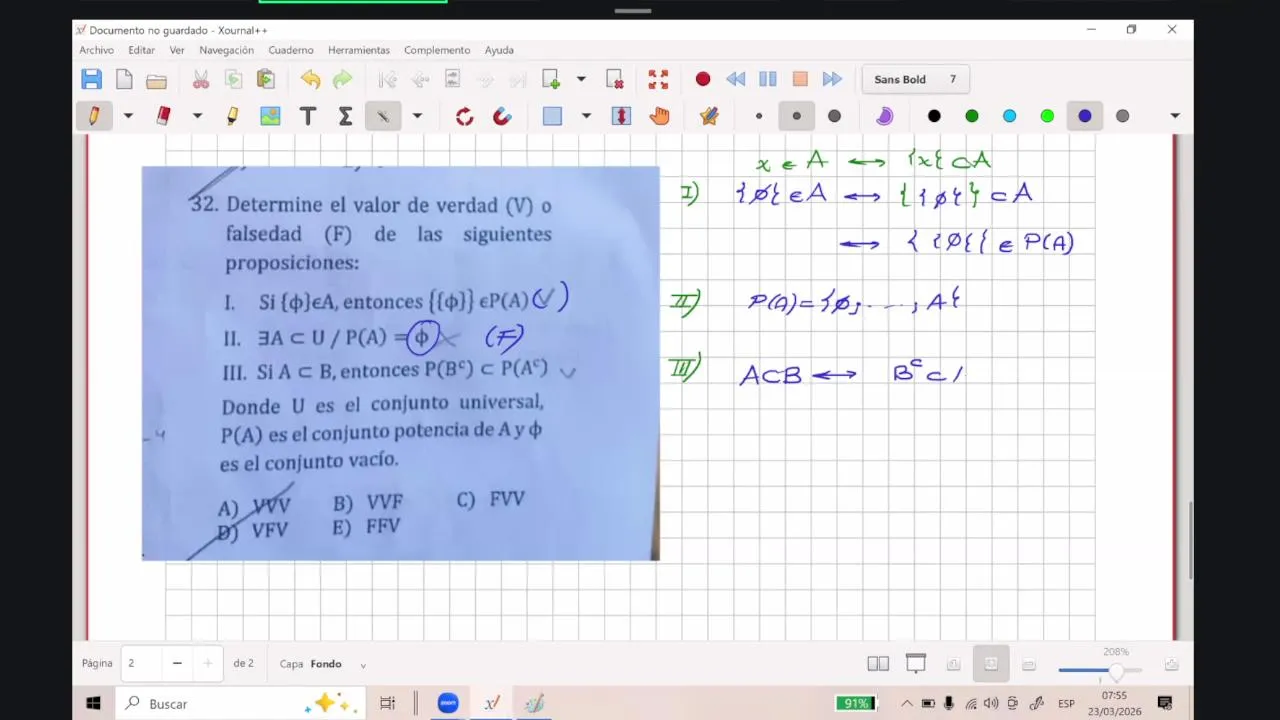 Documento no guardado - Xournal++
Archivo Editar Ver Navegación Cuaderno Herramientas Complemento Ayuda
Sans Bold 7
32. Determine el valor de verdad (V) o
falsedad (F) de las siguientes
proposiciones:
I. Si {ϕ}ϵA, entonces {{ϕ}} ϵP(A) (V)
II. ∃A ⊂ U / P(A) = ϕ (F)
III. Si A ⊂ B, entonces P(Bᶜ) ⊂ P(Aᶜ)
Donde U es el conjunto universal,
P(A) es el conjunto potencia de A y ϕ
es el conjunto vacío.
A) VVV B) VVF C) FVV
D) VFV E) FFV
x ∈ A ↔ {x} ⊂ A
I) {∅} ∈ A ↔ {{∅}} ⊂ A
↔ {{∅}} ∈ P(A)
II) P(A) = {∅; ..., A}
III) A⊂B ↔ Bᶜ ⊂
Página 2 de 2 Capa Fondo
208%
Buscar
zoom
91%
ESP
07:55
23/03/2026